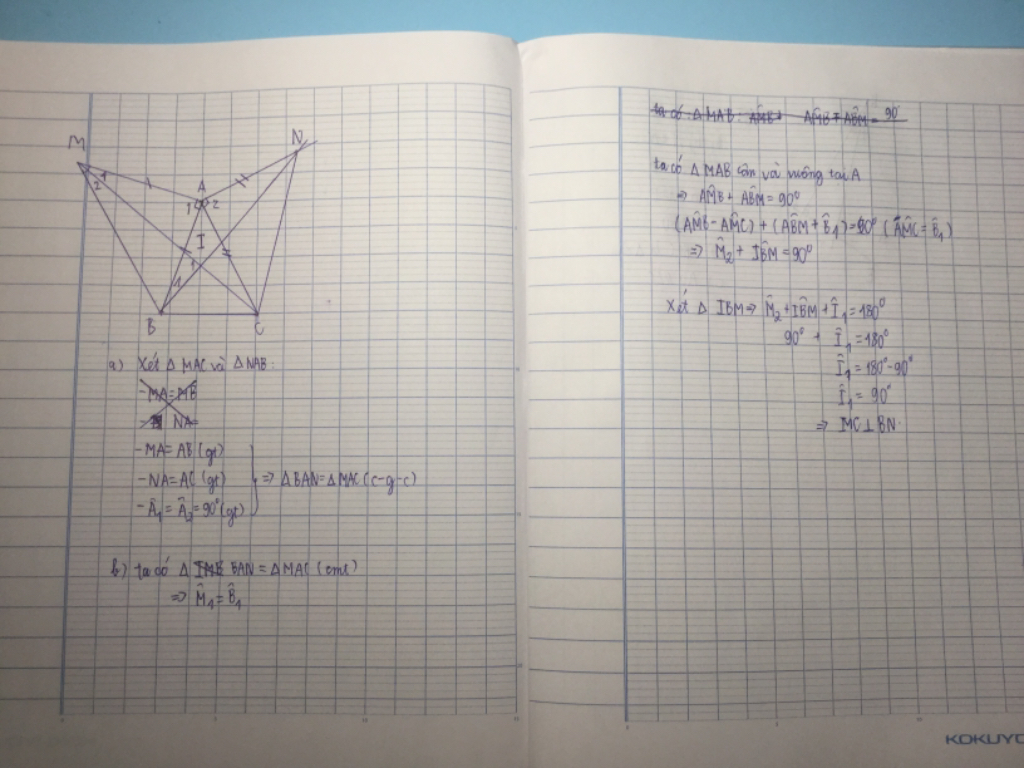 M
N
A
1
2
1 2
I
1
1
B
C
a) Xét Δ MAC và Δ NAB:
- MA = MB
NA =
- MA = AB (gt)
- NA = AC (gt) ⇒ Δ BAN = Δ MAC (c-g-c)
- Â₁ = Â₂ = 90° (gt)
b) ta có Δ BAN = Δ MAC (cmt)
⇒ M̂₁ = B̂₁
ta có: Δ MAB: AM̂B + AM̂B + AB̂M = 90°
ta có Δ MAB cân và vuông tại A
⇒ AM̂B + AB̂M = 90°
(AM̂B - AM̂C) + (AB̂M + B̂₁) = 90° (AM̂C = B̂₁)
⇒ M̂₂ + IB̂M = 90°
Xét Δ IBM ⇒ M̂₂ + IB̂M + Î₁ = 180°
90° + Î₁ = 180°
Î₁ = 180° - 90°
Î₁ = 90°
⇒ MC ⊥ BN
KOKUYO